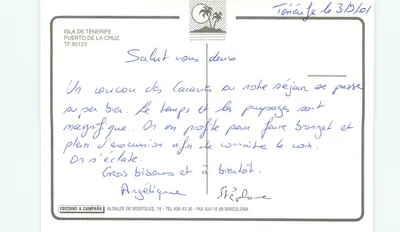 Ténérife le 3/9/01
ISLA DE TENERIFE
PUERTO DE LA CRUZ
TF 80123
Salut vous deux
Un coucou des Canaries où notre séjour se passe
super bien. Le temps et les paysages sont
magnifique. On en profite pour faire bronzet et
plein d'excursion afin de connaître le coin.
On s'éclate.
Gros bisous et à bientôt.
Angélique Stéphane
EDICIONS A. CAMPAÑÁ ALCALDE DE MOSTOLES, 19 - TEL 450 43 36 - FAX 450 18 89 BARCELONA